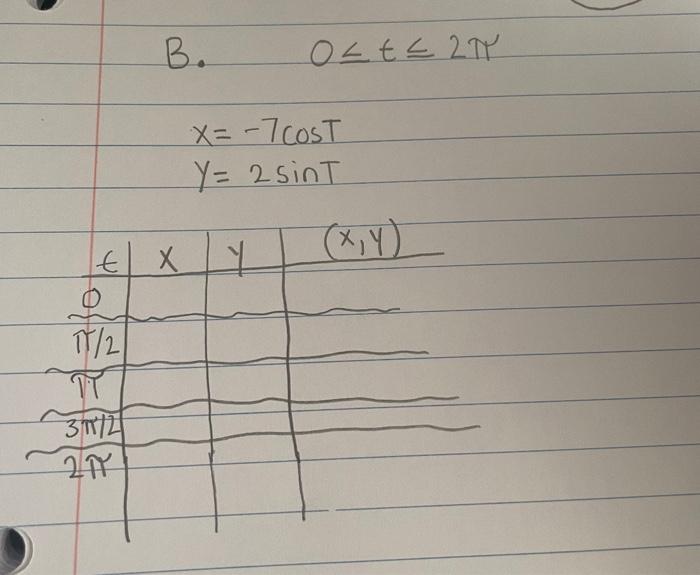 B. 0 ≤ t ≤ 2π
x= -7cosT
Y= 2sinT
t X Y (X,Y)
0
π/2
π
3π/2
2π